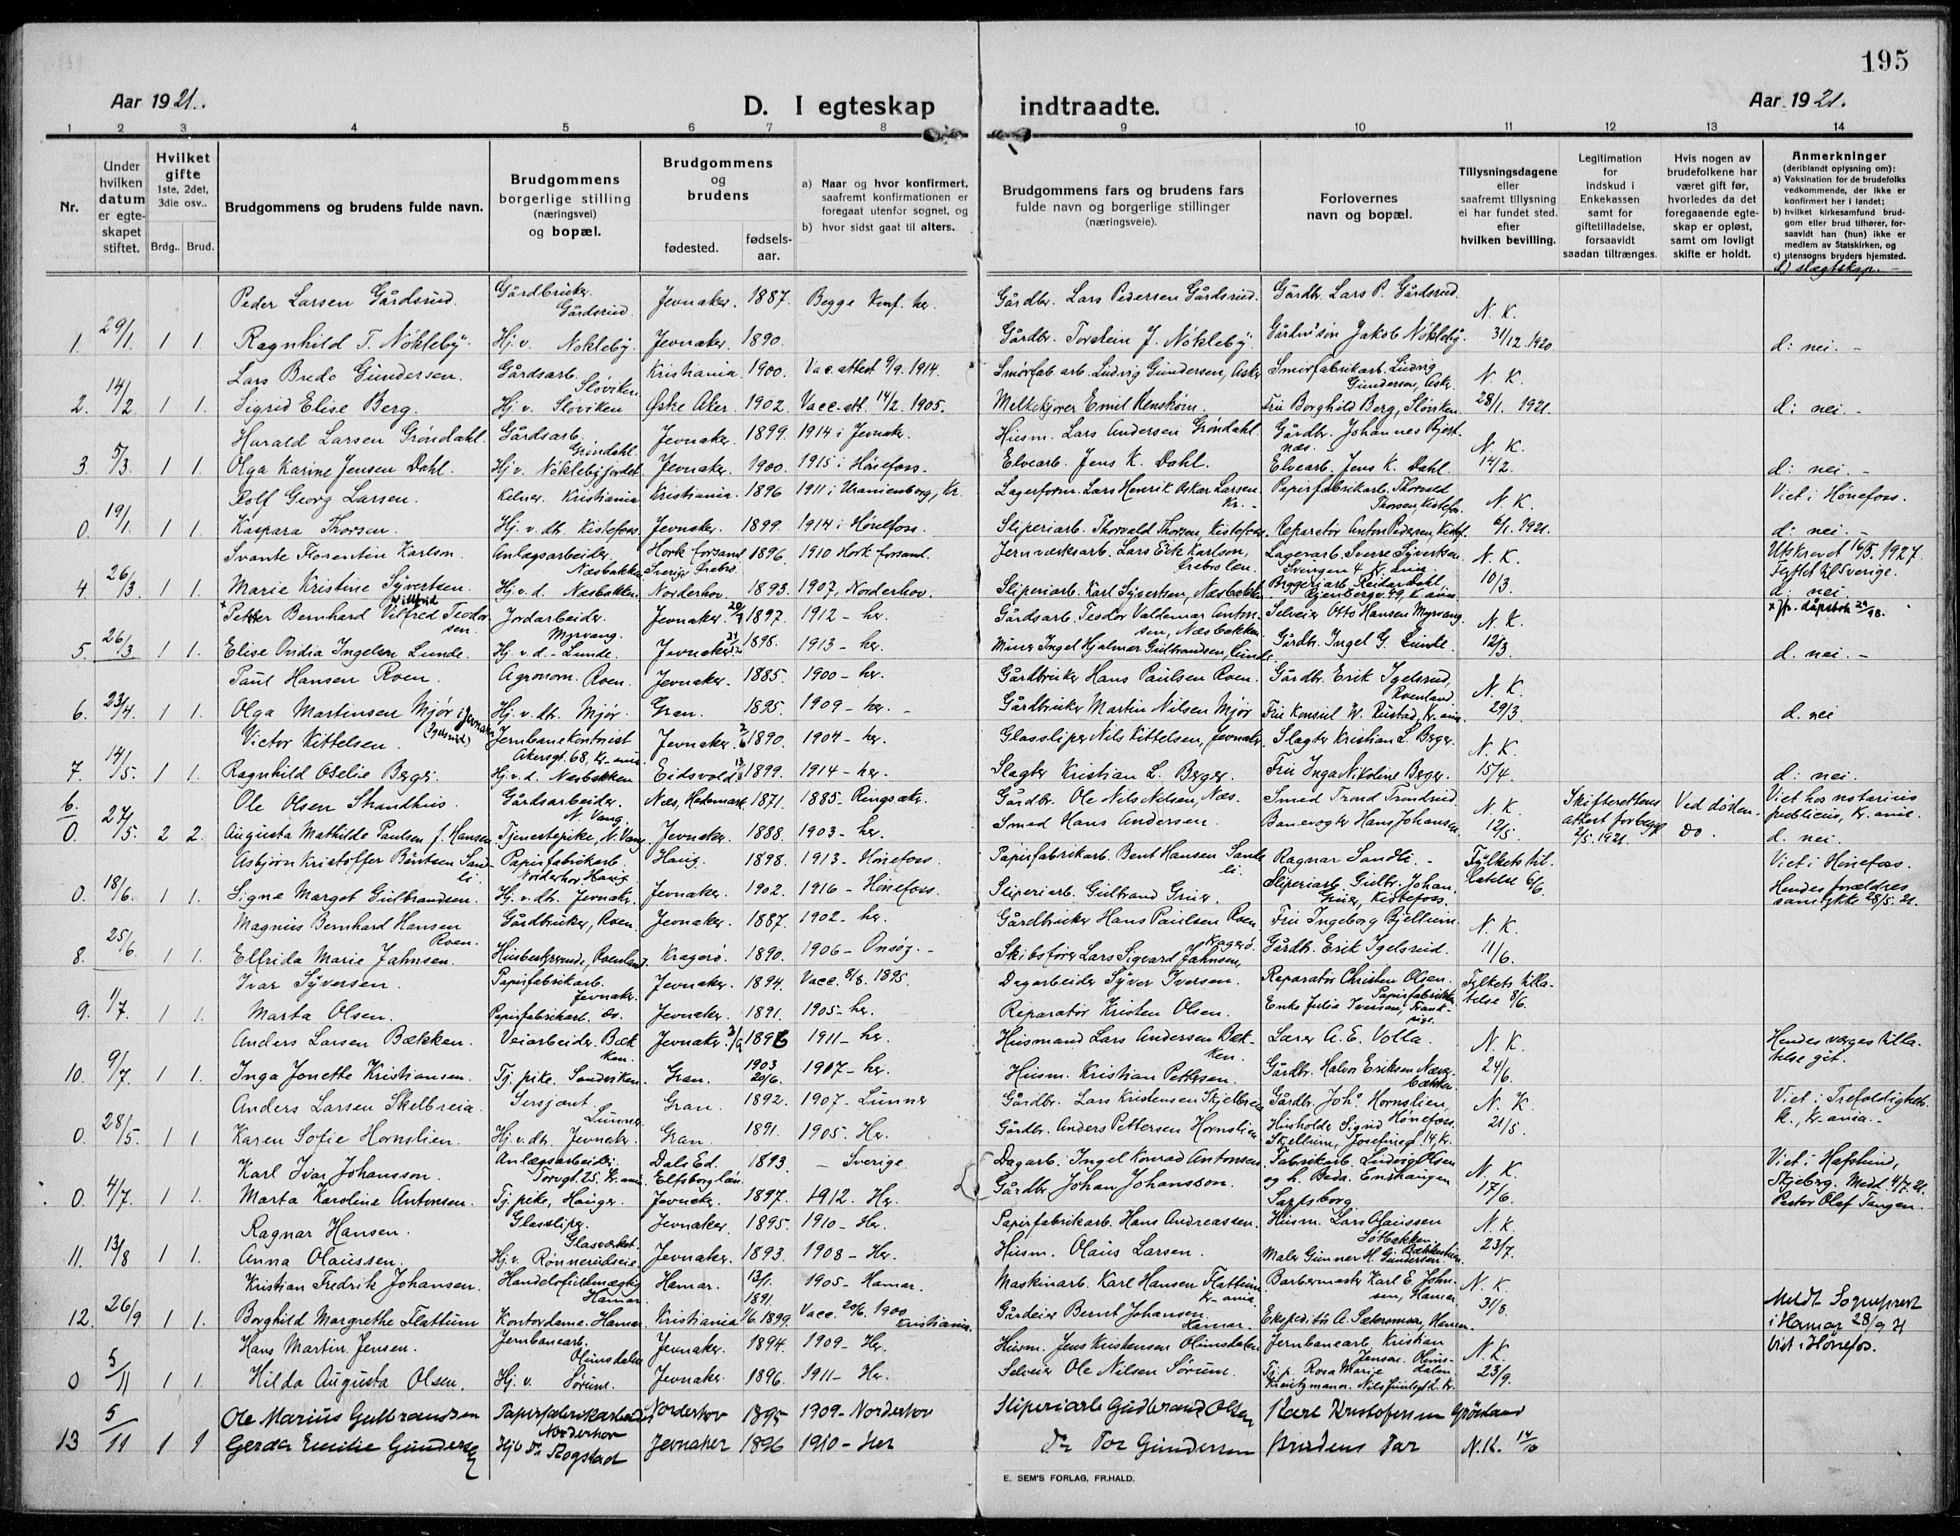 195
Aar 1921.
D. I egteskap indtraadte.
Aar 1921.
1 2 3 4 5 6 7 8 9 10 11 12 13 14
Nr.
Under hvilken datum er egte-skapet stiftet.
Hvilket gifte 1ste, 2det, 3die osv..
Brdg.. Brud.
Brudgommens og brudens fulde navn.
Brudgommens borgerlige stilling (næringsvei) og bopæl.
Brudgommens og brudens
fødested. fødsels-aar.
a) Naar og hvor konfirmert, saafremt konfirmationen er foregaat utenfor sognet, og
b) hvor sidst gaat til alters.
Brudgommens fars og brudens fars fulde navn og borgerlige stillinger (næringsveie).
Forlovernes navn og bopæl.
Tillysningsdagene eller saafremt tillysning ei har fundet sted. efter hvilken bevilling.
Legitimation for indskud i Enkekassen samt for giftetilladelse, forsaavidt saadan tiltrænges.
Hvis nogen av brudefolkene har været gift før, hvorledes da det foregaaende egte-skap er opløst, samt om lovlig skifte er holdt.
Anmerkninger (deriblandt oplysning om):
a) Vaksination for de brudefolks vedkommende, der ikke er konfirmert her i landet;
b) hvilket kirkesamfund brud-gom eller brud tilhører, for-saavidt han (hun) ikke er medlem av Statskirken, og
c) utensogns bruders hjemsted.
d) slægtskap.
Peder Larsen Gårdsrud. Gårdbruker. Gårdsrud. Jevnaker. 1887. Begge konf. her. Gårdbr. Lars Pedersen Gårdsrud. Gårdbr. Lars P. Gårdsrud. N. K.
1. 29/1. 1 1. Ragnhild T. Nökleby. Hj. v. Nökleby. Jevnaker. 1890. Gårdbr. Torstein J. Nökleby. Jakob Nökleby. 31/12 1920 d: nei.
Lars Bredo Gundersen. Gårdsarb. Slöviken. Kristiania. 1900. Vac. attest 9/9. 1914. Smörfab. arb. Ludvig Gundersen, Asker Smörfabrikarb. Ludvig Gundersen, Asker. N. K.
2. 14/2 1 1. Sigrid Elise Berg. Hj. v. Slöviken Østre Aker. 1902. Vacc. att. 14/2. 1905. Melkekjører Emil Fru Borghild Berg, Slöviken. 28/1. 1921. d: nei.
Harald Larsen Gröndahl. Gårdsarb. Gröndahl. Jevnaker. 1899. 1914 i Jevnaker. Husm. Lars Andersen Gröndahl. Gårdbr. Johannes N. K.
3. 5/3. 1 1. Olga Karine Jensen Dahl. Hj. v. Nöklebyfjordet. Jevnaker. 1900. 1915 i Hönefoss. Elvearb. Jens K. Dahl. Elvearb. Jens K. Dahl. 14/2. d: nei.
Rolf Georg Larsen. Kelner. Kristiania Kristiania. 1896 1911 i Uranienborg, Kr. Lagerform. Lars Henrik Oskar Larsen Kr. Papirfabrikarb. Thorvald Thorsen Kistefos. N. K. Viet i Hönefoss.
0. 19/1. 1 1. Kaspara Thorsen. Hj. v. dtr. Kistefoss. Jevnaker. 1899. 1914 i Hönefoss. Sliperiarb. Thorvald Thorsen, Kistefoss. Reparatør Anton Pedersen, Kistef. 6/1. 1921. d: nei.
Svante Florentin Karlson. Anlægsarbeider. Næsbakken. Sverige Örebro 1896. 1910 Jernværksarb. Lars Erik Karlson, Örebro län. Lagerarb. Sverre Syvertsen N. K. Utskrevet 16/5. 1927. Flyttet til Sverige.
4 26/3. 1 1. Marie Kristine Syvertsen Hj. v. d. Næsbakken. Norderhov. 1893. 1907, Norderhov. Sliperiarb. Karl Syvertsen, Næsbakken. 10/3. d: nei.
Petter Bernhard Vilfred Teodor-sen. Jordarbeider. Myrvang. Jevnaker. 1897. 1912 - her. Gårdsarb. Teodor Valdemar Anton-sen, Næsbakken Selveier Otto Hansen Myrvang. N. K.
5. 26/3. 1 1. Elise Ovidia Ingelsen Lunde. Hj. v. d. - Lunde. Jevnaker. 1898. 1913 - her. Murer Ingel Hjalmar Gulbrandsen, Lunde Gårdbr. Ingel G. Lunde. 12/3. d. nei.
Paul Hansen Roen. Agronom. Roen. Jevnaker. 1885. 1900 - her. Gårdbruker Hans Paulsen Roen. Gårdbr. Erik Igelsrud, Roenland. N. K.
6. 23/4. 1 1. Olga Martinsen Mjör i Jevnaker (Igelsrud) Hj. v. dtr. Mjör. Gran. 1895. 1909 - her. Gårdbruker Martin Nilsen Mjör Fru Konsul W. Rustad, Kr.ania. 29/3. d. nei
Victor Kittelsen. Jernbanekontorist Akersgt. 68, Kr.ania. Jevnaker. 1890. 1904 - her. Glassliper Nils Kittelsen, Jevnaker. Slagter Kristian L. Berger. N. K.
7. 14/5. 1 1. Ragnhild Oselie Berger. Hj. v. d. Næsbakken Eidsvold 1899. 1914 - her. Slagter Kristian L. Berger. Fru Inga Nikoline Berger. 15/4. d: nei.
6. Ole Olsen Strandhus. Gårdsarbeider. N. Vang. Næs, Hedemark. 1871. 1885. Ringsaker. Gårdbr. Ole Nils Nilsen, Næs. Smed Trond Trondsrud. N. K. Skifterettens attest forbeggl 2/5. 1921. Ved döden. Viet hos notarius publicus, Kr.ania.
0. 27/5. 2 2. Augusta Mathilde Paulsen f. Hansen Tjenestepike, N. Vang Jevnaker. 1888. 1903 - her. Smed Hans Andersen. Banevogter Hans Johansen. 12/5. Do. d. nei.
Asbjörn Kristoffer Böntsen Sand-li. Papirfabrikarb. Norderhov Haug Haug. 1898. 1913 - Hönefoss. Papirfabrikarb. Bent Hansen Sand-li. Ragnar Sandli. Fylkets til-latelse 6/6. Viet i Hönefoss.
0. 18/6. 1 1. Signe Margot Gulbrandsen. Hj. v. dtr. Jevnaker. Jevnaker. 1902. 1916 - Hönefoss. Sliperiarb. Gulbrand Gruer. Sliperiarb. Gulbr. Johan. Gruer, Kistefoss. Hendes forældres samtykke 28/5. 21.
Magnus Bernhard Hansen Roen. Gårdbruker, Roen. Jevnaker. 1887. 1902 - her. Gårdbruker Hans Paulsen Roen Fru Ingeborg Bjellum. N. K.
8. 25/6. 1 1. Elfrida Marie Jahnsen. Husbestyrerinde, Roenland. Kragerö. 1890. 1906 - Onsøy. Skibsfører Lars Sigvard Jahnsen, Kragerö. Gårdbr. Erik Igelsrud. 11/6.
Ivar Syversen. Papirfabrikarb. Jevnaker. Jevnaker. 1894. Vacc. 8/8. 1895. Dagarbeider Syver Iversen. Reparatør Christen Olsen. Papirfabrikken Fylkets tilla-telse 8/6.
9. 1/7. 1 1. Marta Olsen. Papirfabrikarb. do. Jevnaker. 1891. 1905 - her. Reparatør Kristen Olsen. Enke Julia Iversen,
Anders Larsen Bækken. Veiarbeider. Bæk-ken. Jevnaker. 1896 1911 - her. Husmand Lars Andersen Bæk-ken. Lærer A. E. Volla. N. K. Hendes verges tilla-telse git.
10. 9/7. 1 1. Inga Jonette Kristiansen. Tj. pike. Sandviken. Gran. 1903 20/6. 1917 - her. Husm. Kristian Pettersen. Gårdbr. Halvor Eriksen Næver-bækken. 24/6.
Anders Larsen Skelbreia. Sersjant. Lunner. Gran. 1892. 1907 - Lunner Gårdbr. Lars Kristensen Skjelbreia Gårdbr. Johs Hornslien, Hönefoss. N. K. Viet i Trefoldighets-k., Kr.ania.
0. 28/5. 1 1. Karen Sofie Hornslien. Hj. v. dtr. Jevnaker. Gran. 1891. 1905. Her. Gårdbr. Anders Pettersen Hornslien Husholder. Sigrid Skjellum, Josefinegt. 14, Kr. 21/5.
Karl Ivar Johansson. Anlægsarbeider. Torvgt. 25. Kr.ania. Dals Ed. Elfsborg län. 1893. - Sverige. Dagarb. Ingel Konrad Antonsen Fabrikarb. Ludvig Olsen og h. Beda. Enghaugen N. K. Viet i Hafslund, Skjeberg. Medd. 4/7. 21. Pastor Olaf Tangen.
0. 4/7. 1 1. Marta Karoline Antonsen. Tj. pike, Hauger. Jevnaker. 1897. 1912. Her. Gårdbr. Johan Johansson. Sarpsborg 17/6.
Ragnar Hansen. Glassliper. Glasverket. Jevnaker. 1895. 1910 - Her. Papirfabrikarb. Hans Andreassen. Husm. Lars Olaussen N. K.
11. 13/8 1 1. Anna Olaussen. Hj. v. Rönnerudseie Jevnaker. 1893. 1908 - Her. Husm. Olaus Larsen. Maler Gunner H. Gundersen. 23/7.
Kristian Fredrik Johansen. Handelsfuldmægtig Hamar. Hamar. 13/1. 1891. 1905 - Hamar. Maskinarb. Karl Hansen Flattum Kr-ania. Barbermester Karl E. John-sen, Hamar N. K.
12. 26/9. 1 1. Borghild Margrethe Flattum Kontordame. Hamar. Kristiania 1/6. 1899. Vacc. 20/6. 1900 Kristiania. Gårdeier Bernt Johansen Hamar. Ekspeditr. A. Hamar. 31/8. Meldt Sogneprest i Hamar 28/9 21
Hans Martin Jensen. Jernbanearb. Olimsdalen Jevnaker. 1894. 1909 - Her. Husm. Jens Kristensen Olimsdalen. Jernbanearb. Kristian Jensen. Olims-dalen N. K. Viet i Hönefos.
0 5/11 1 1. Hilda Augusta Olsen. Hj. v. Sörum. Jevnaker. 1896. 1911 - Her. Selveier Ole Nilsen Sörum. Tj. p. Rosa Marie 23/9.
Ole Marius Gulbrandsen Papirfabrikarbeider Norderhov Norderhov 1895 1909 - Norderhov Sliperiarb Gudbrand Olsen Karl Kristofersen Grösland
13 5/11 1 1 Gerda Emilie Gundersen Hjv. Dr Rogstad Jevnaker 1896 1910 - Her Tor Gundersen Brudens Far N.K. 14/10
E. SEM'S FORLAG, FR.HALD.